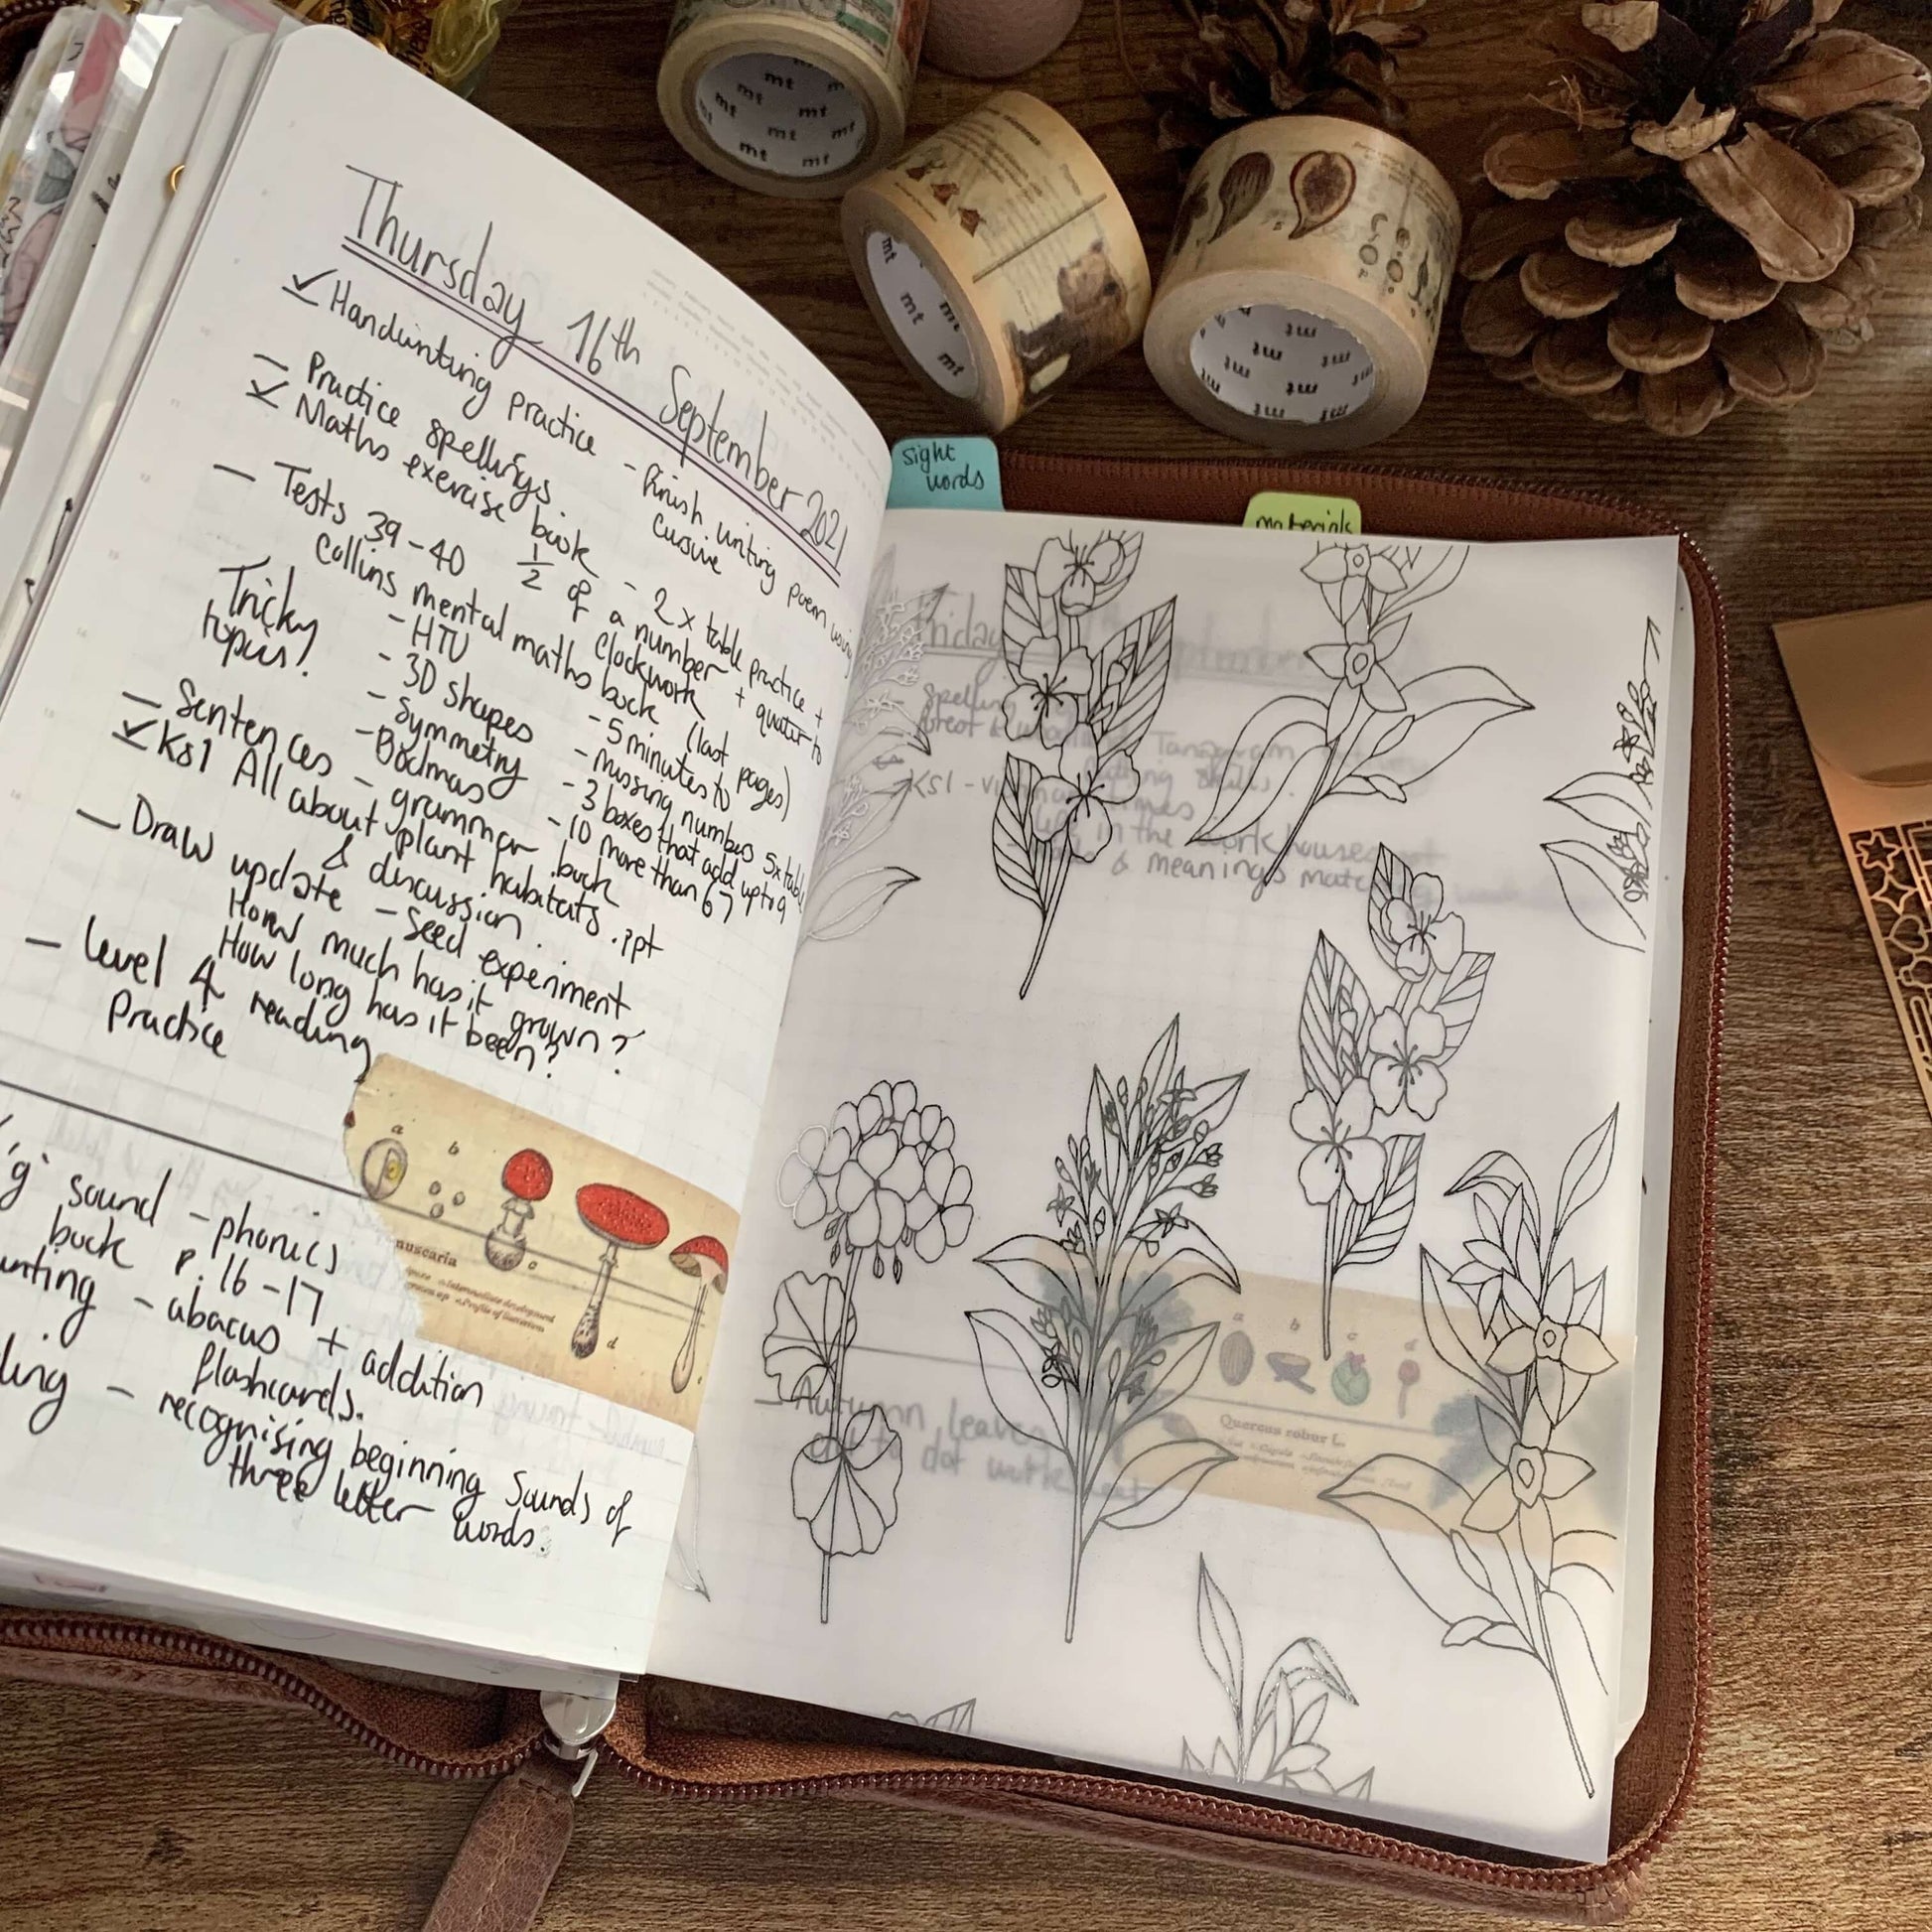 Thursday 16th September 2021
Handwriting practice - finish writing poem using
cursive
Practice spellings
Maths exercise book - 2x table practice +
1/2 of a number + quarter to
Clockwork
Tests 39-40 Collins mental maths book (last pages)
Tricky topics!
- HTU
- 3D shapes
- Symmetry
- Bodmas
- 5 minutes to
- missing numbers 5x table
- 3 boxes that add up to 9
- 10 more than 67
Sentences - grammar book
& discussion.
KS1 All about plant habitats .ppt
Draw update - Seed experiment
How much has it grown?
How long has it been?
Level 4 reading
Practice
'g' sound - phonics
book p.16-17
- abacus + addition
flashcards.
- recognising beginning sounds of
three letter words.
a
b
c
d
muscaria
Sight
words
materials
Friday September
Spelling
Tanagram
KS1 -
in the workhouses
& meanings
Autumn leaves
dot to dot worksheet
a
b
c
d
Quercus robur L.
mt
mt
mt